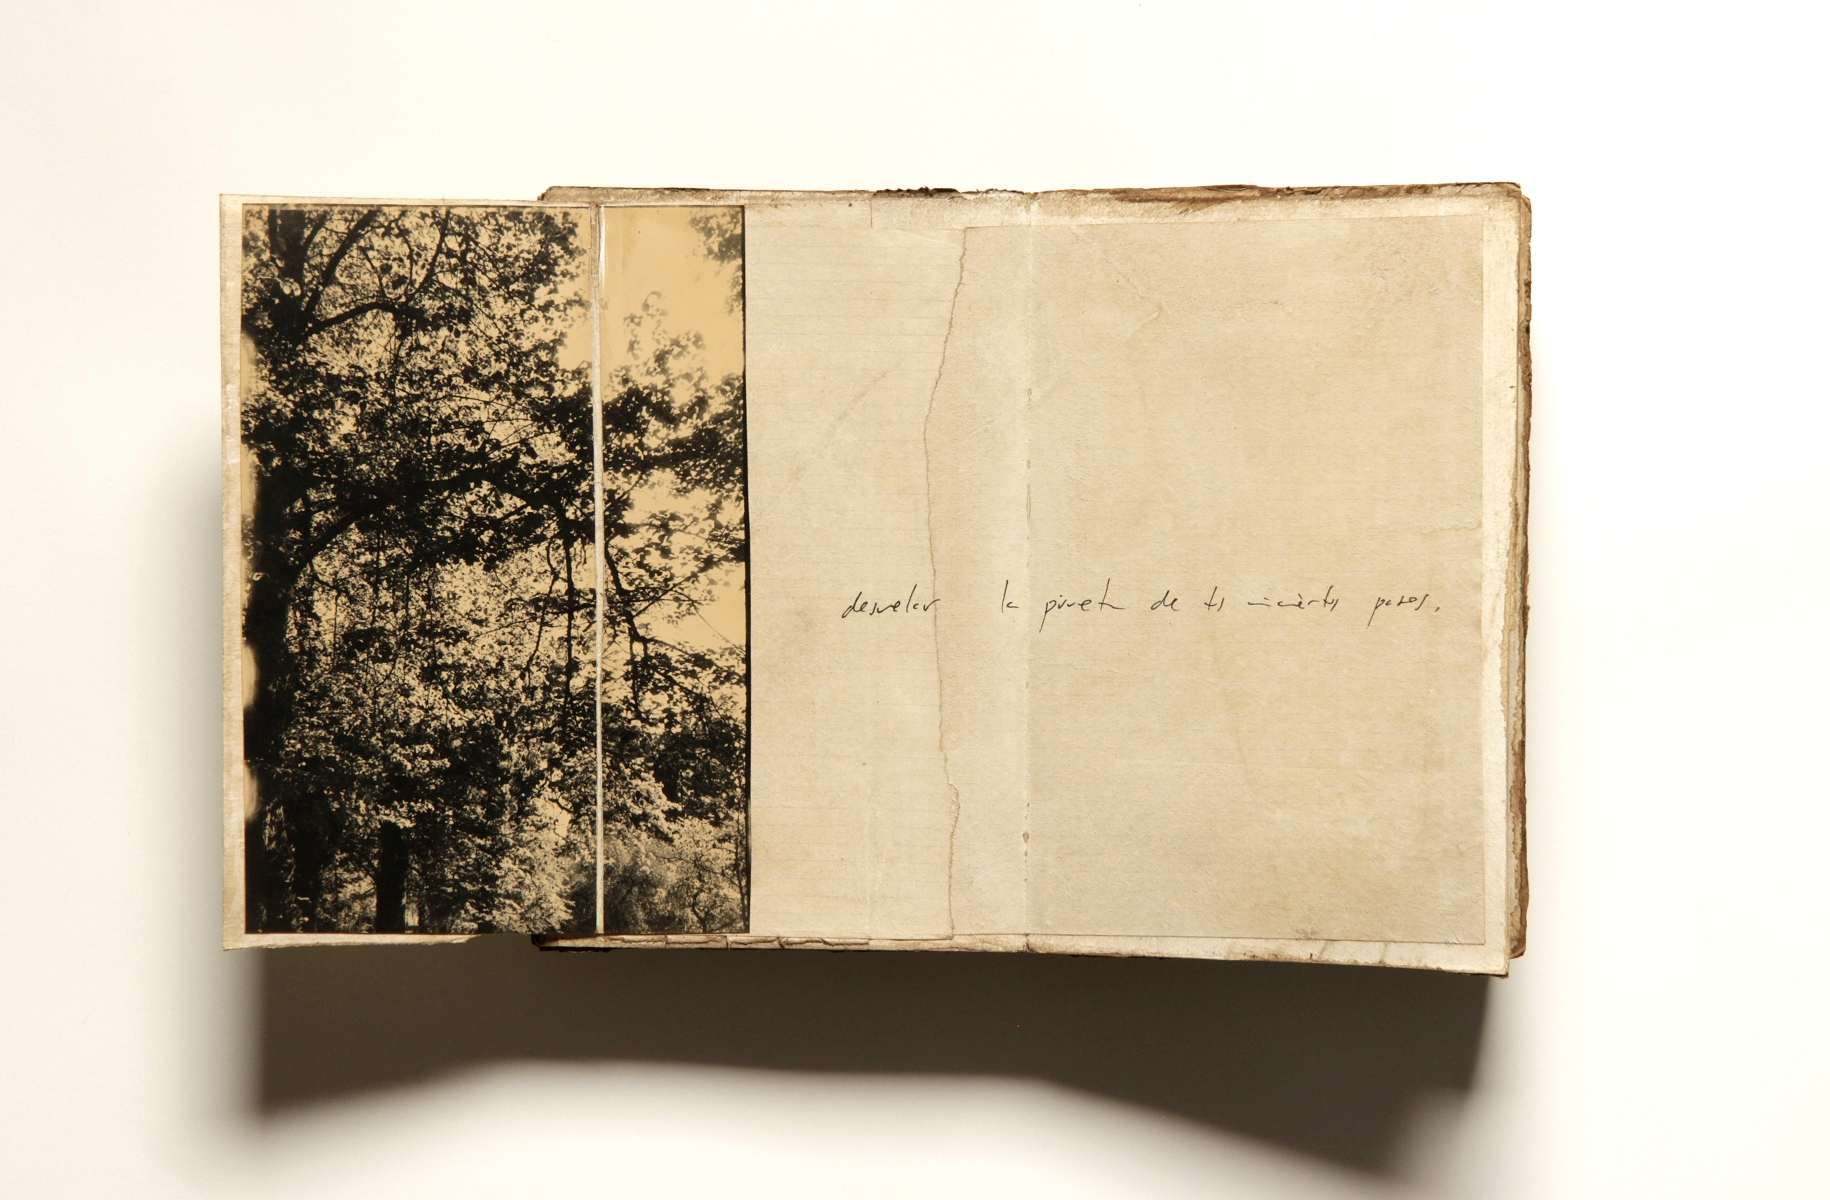 desvelar la pirueta de tus inciertos pasos.